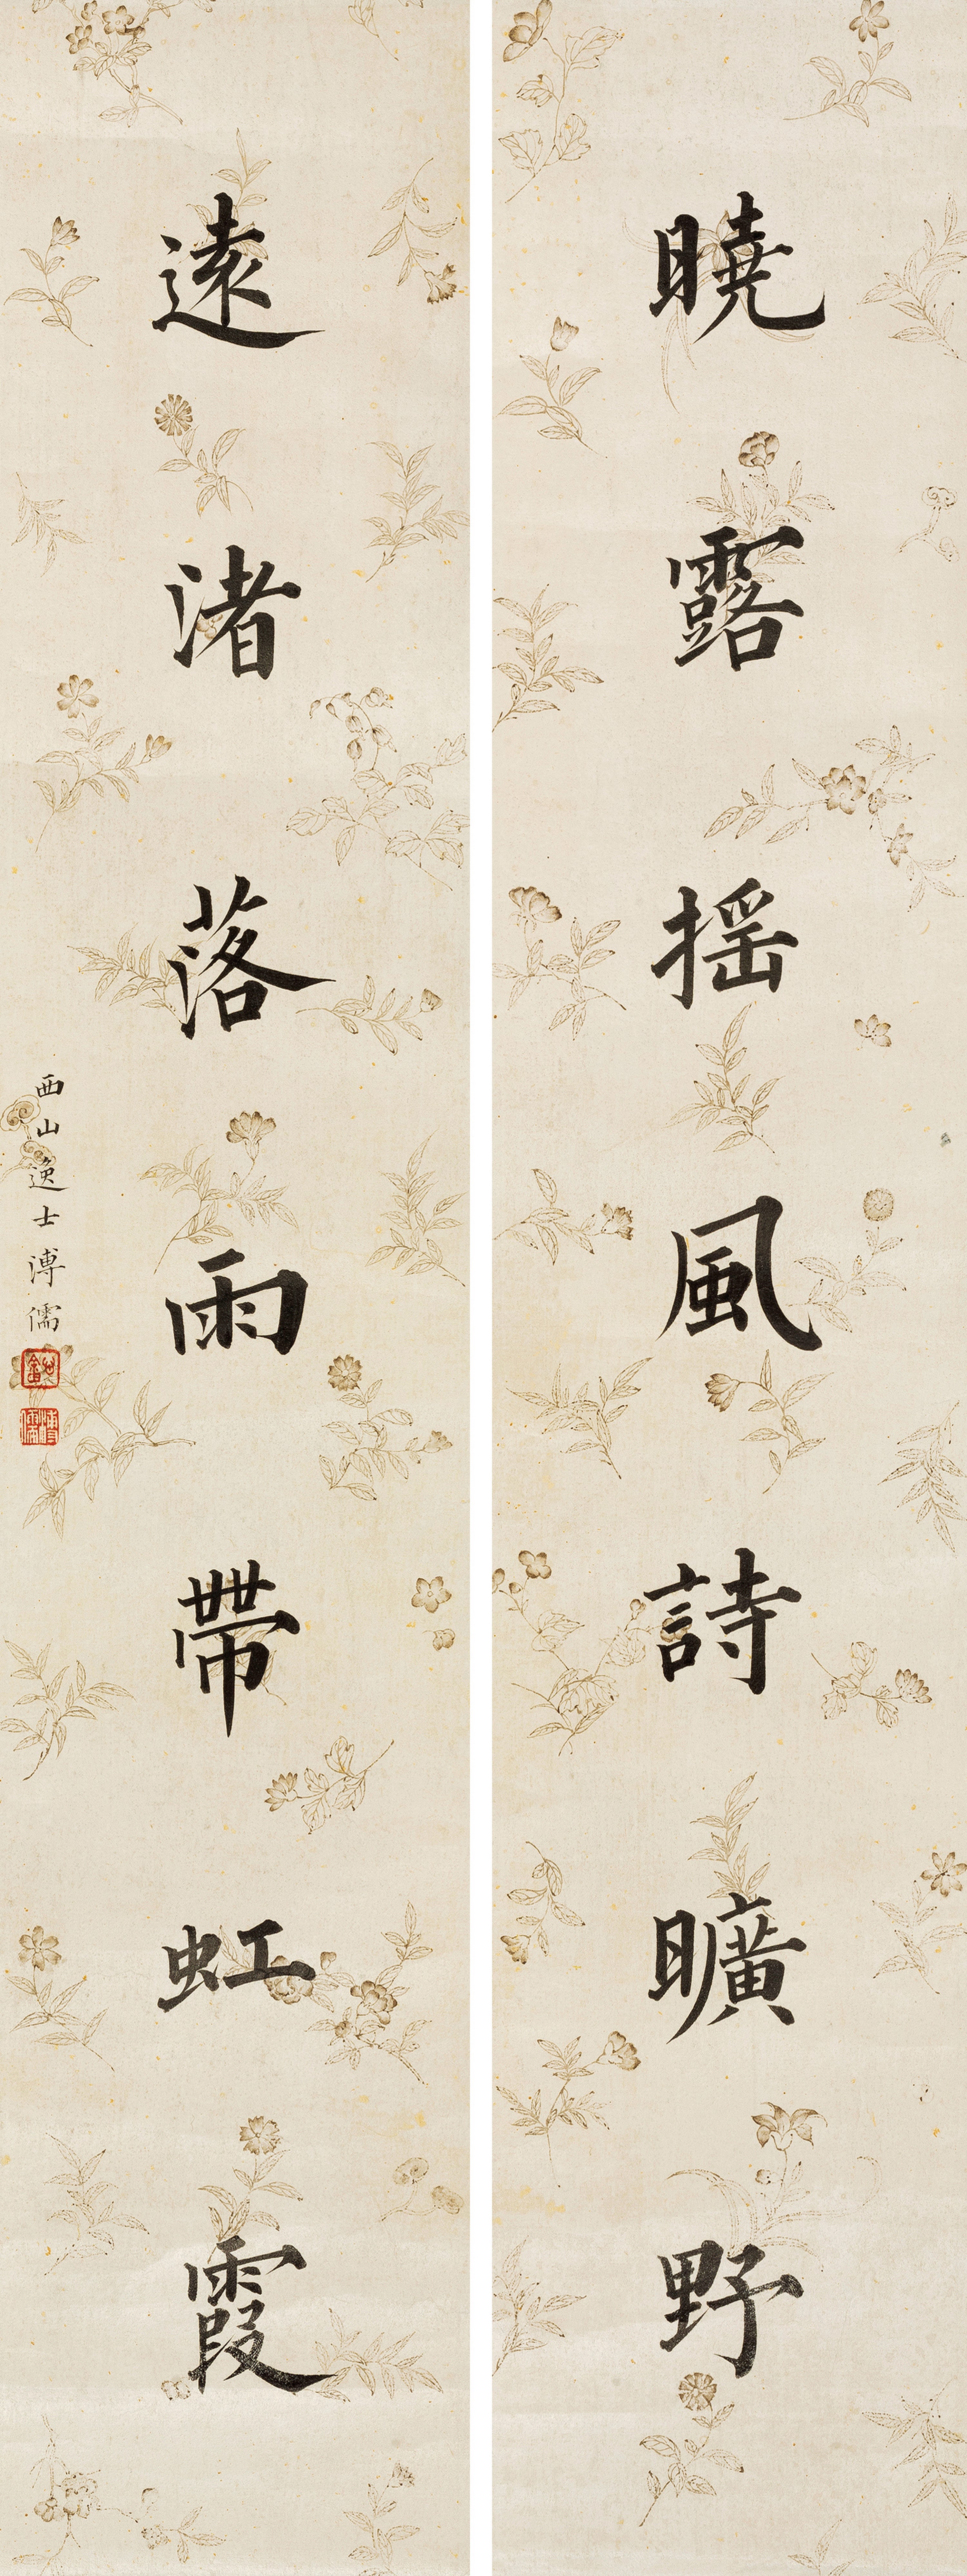 曉露搖風詩曠野
遠渚落雨帶虹霞
西山逸士溥儒
溥儒